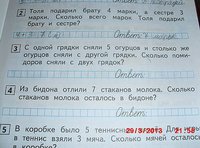 2 Толя подарил брату 4 марки, а сестре 3
марки. Сколько всего марок Толя подарил
брату и сестре?
Ответ: 7
3 С одной грядки сняли 5 огурцов и столько же
огурцов сняли с другой грядки. Сколько поми-
доров сняли с двух грядок?
Ответ:
4 Из бидона отлили 7 стаканов молока. Сколько
стаканов молока осталось в бидоне?
Ответ:
5 В коробке было 5 теннисных
в теннис взяли 3 мяча. Сколько мячей осталось
в коробке?
29/3/2013 21:58